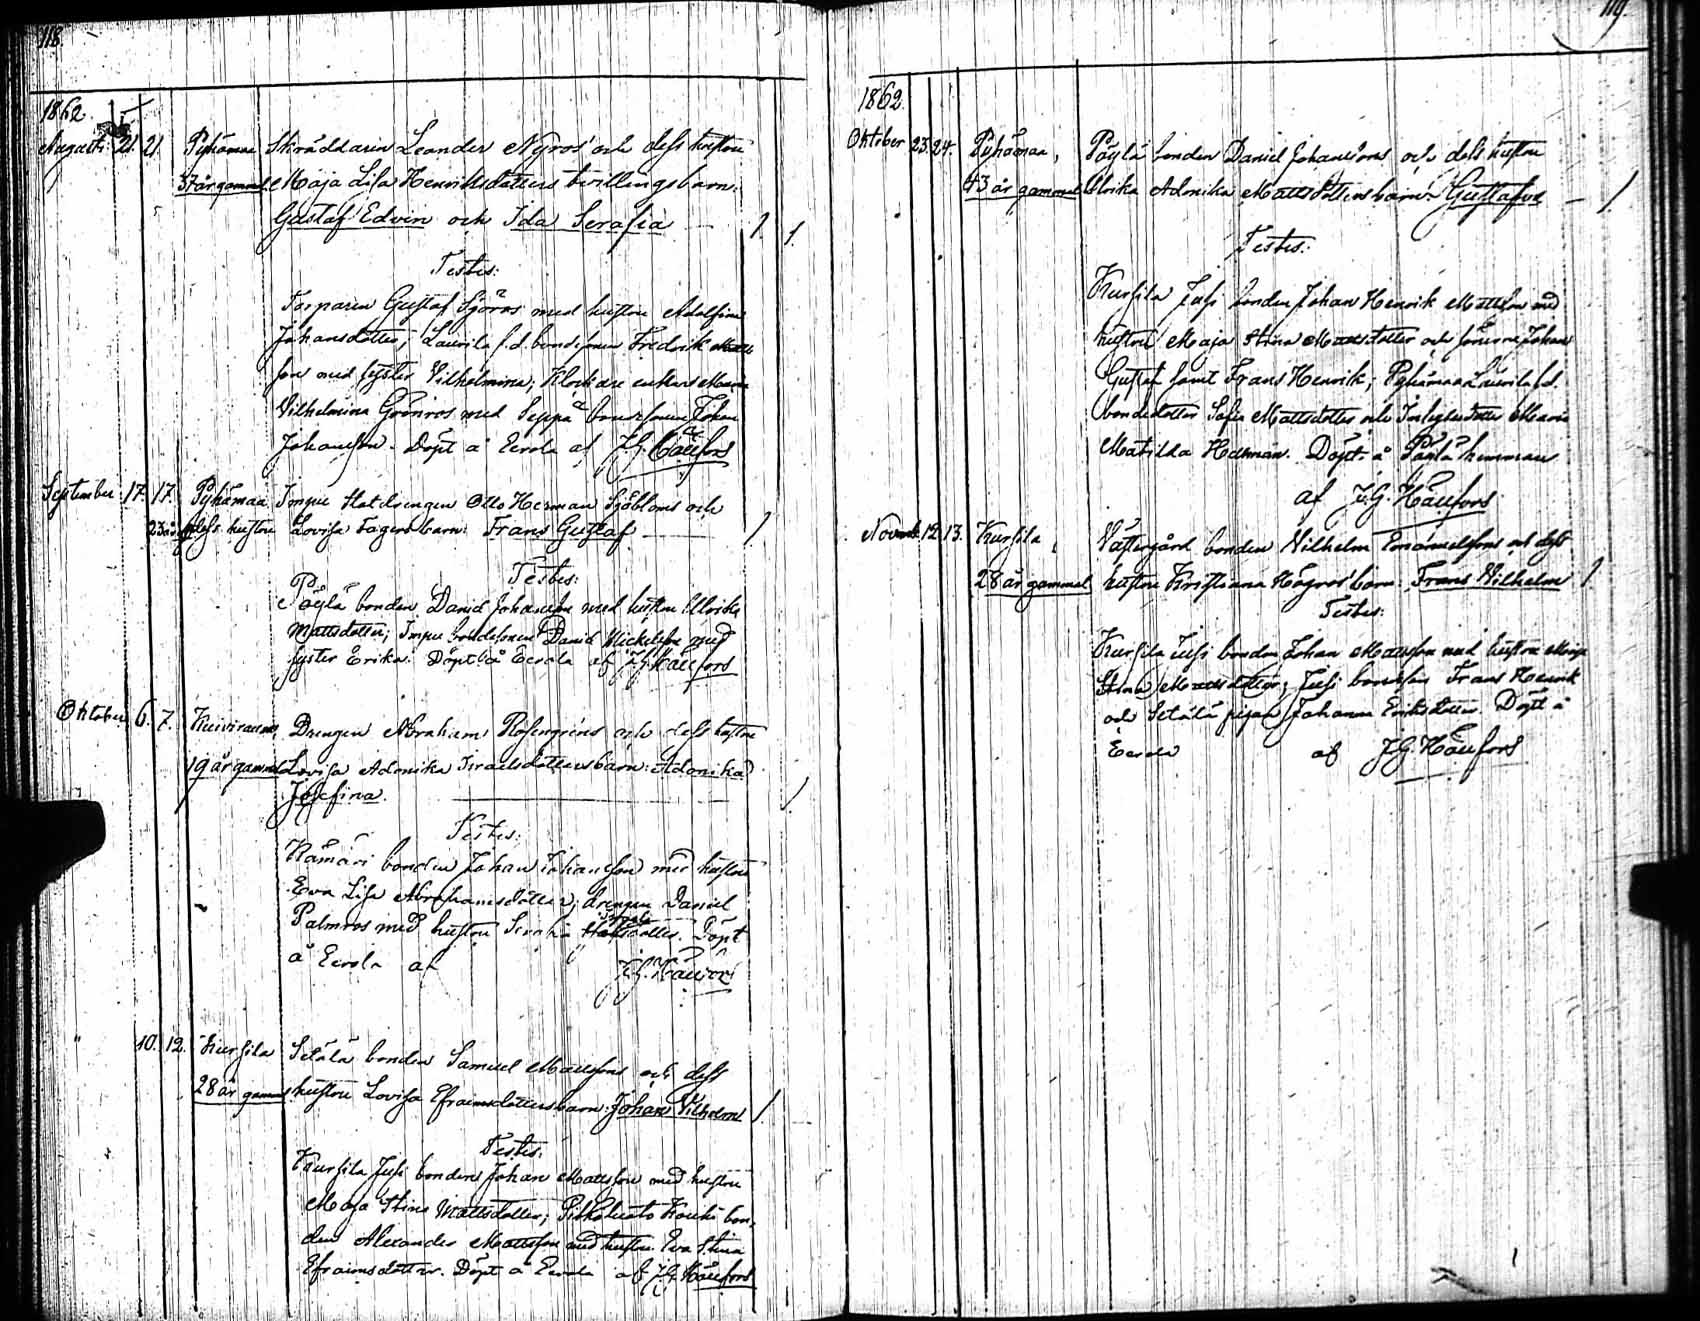 118.
1862.
Augusti 21. 21. Pyhämaa Skräddaren Leander Nyros' och dess hustru
37 år gammal Maja Lisa Henriksdotters tvillingsbarn:
Gustaf Edvin och Ida Serafia 1. 1.
Testes:
Torparen Gustaf Sjöros med hustru Adolfina
Johansdotter; Laurila f.d. bondesonen Fredrik Matts
son med syster Vilhelmina; Klockare enkans Maria
Vilhelmina Grönros med Seppä bondesonen Johan
Johansson. Döpt å Eerola af J.G. Hällfors
September 17. 17. Pyhämaa Impue Statdrengen Otto Herman Sjöbloms och
23 år g. dess hustru Lovisa Fagers barn: Frans Gustaf 1
Testes:
Päylä bonden Daniel Johansson med hustru Ulrika
Mattsdotter; Impue bondesonen David Mickelsson med
syster Erika. Döpt å Eerola af J.G. Hällfors
Oktober 6. 7. Kuivirauma, Drengen Abraham Rosengréns och dess hustru
19 år gammal Lovisa Adonika Israelsdotters barn: Adonika
Josefina. 1
Testes:
Hämäri bonden Johan Johansson med hustru
Eva Lisa Abrahamsdotter; drengen Daniel
Palmros med hustru Serafia dotter. Döpt
å Eerola af J.G. Hällfors
" 10. 12. Kursila Setälä bonden Samuel Mattssons och dess
28 år gammal hustru Lovisa Efraimsdotters barn: Johan Vilhelm 1
Testes:
Kursila Jussi bonden Johan Mattsson med hustru
Maja Stina Mattsdotter; Pitkäluoto Kouki bon-
den Alexander Mattsson med hustru Eva Stina
Efraimsdotter. Döpt å Eerola af J.G. Hällfors
119.
1862.
Oktober 23. 24. Pyhämaa, Päylä bonden Daniel Johanssons och dess hustru
43 år gammal Ulrika Adonika Mattsdotters barn: Gustafva 1.
Testes:
Kursila Jussi bonden Johan Henrik Mattsson med
hustru Maja Stina Mattsdotter och sönerne Johan
Gustaf samt Frans Henrik; Pyhämaa Laurila f.d.
bondedotter Sofia Mattsdotter och Inhysesdotter Maria
Matilda Hedman. Döpt å Päylä hemman
af J.G. Hällfors
Novemb. 12. 13. Kursila, Västergård bonden Vilhelm Emanuelssons och dess
28 år gammal hustru Kristiana Högros' barn: Frans Vilhelm 1
Testes:
Kursila Jussi bonden Johan Mattsson med hustru Maja
Stina Mattsdotter; Jussi bondeson Frans Henrik
och Setälä pigan Johanna Eriksdotter. Döpt å
Eerola af J.G. Hällfors